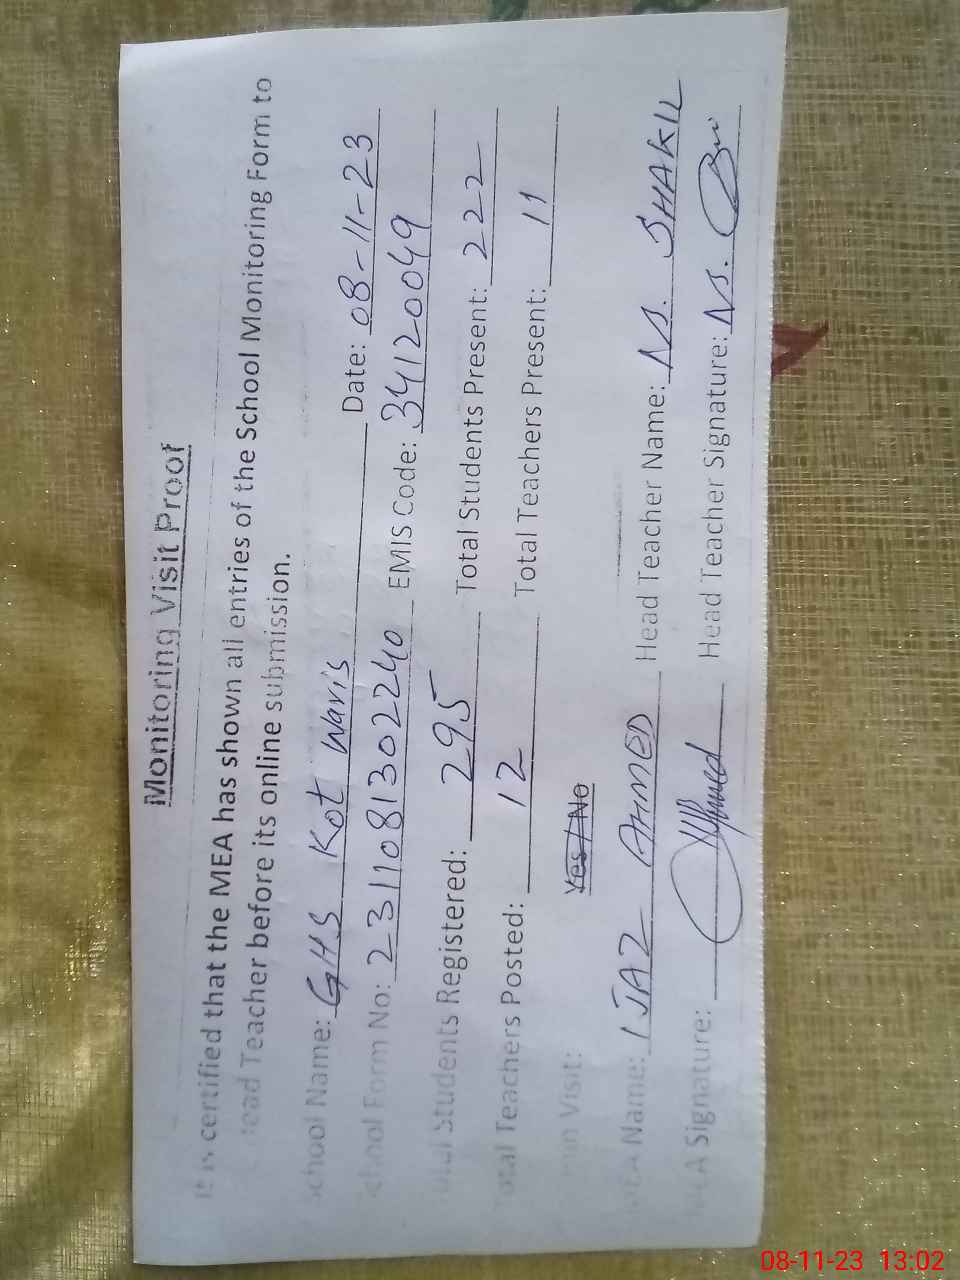 Monitoring Visit Proof
It is certified that the MEA has shown all entries of the School Monitoring Form to
Head Teacher before its online submission.
School Name: GHS Kot Waris Date: 08-11-23
School Form No: 2311081302240 EMIS Code: 34120049
Total Students Registered: 295 Total Students Present: 222
Total Teachers Posted: 12 Total Teachers Present: 11
Visit: Yes / No
MEA Name: IJAZ AHMED Head Teacher Name: M. SHAKIL
MEA Signature: Head Teacher Signature: M.
08-11-23 13:02